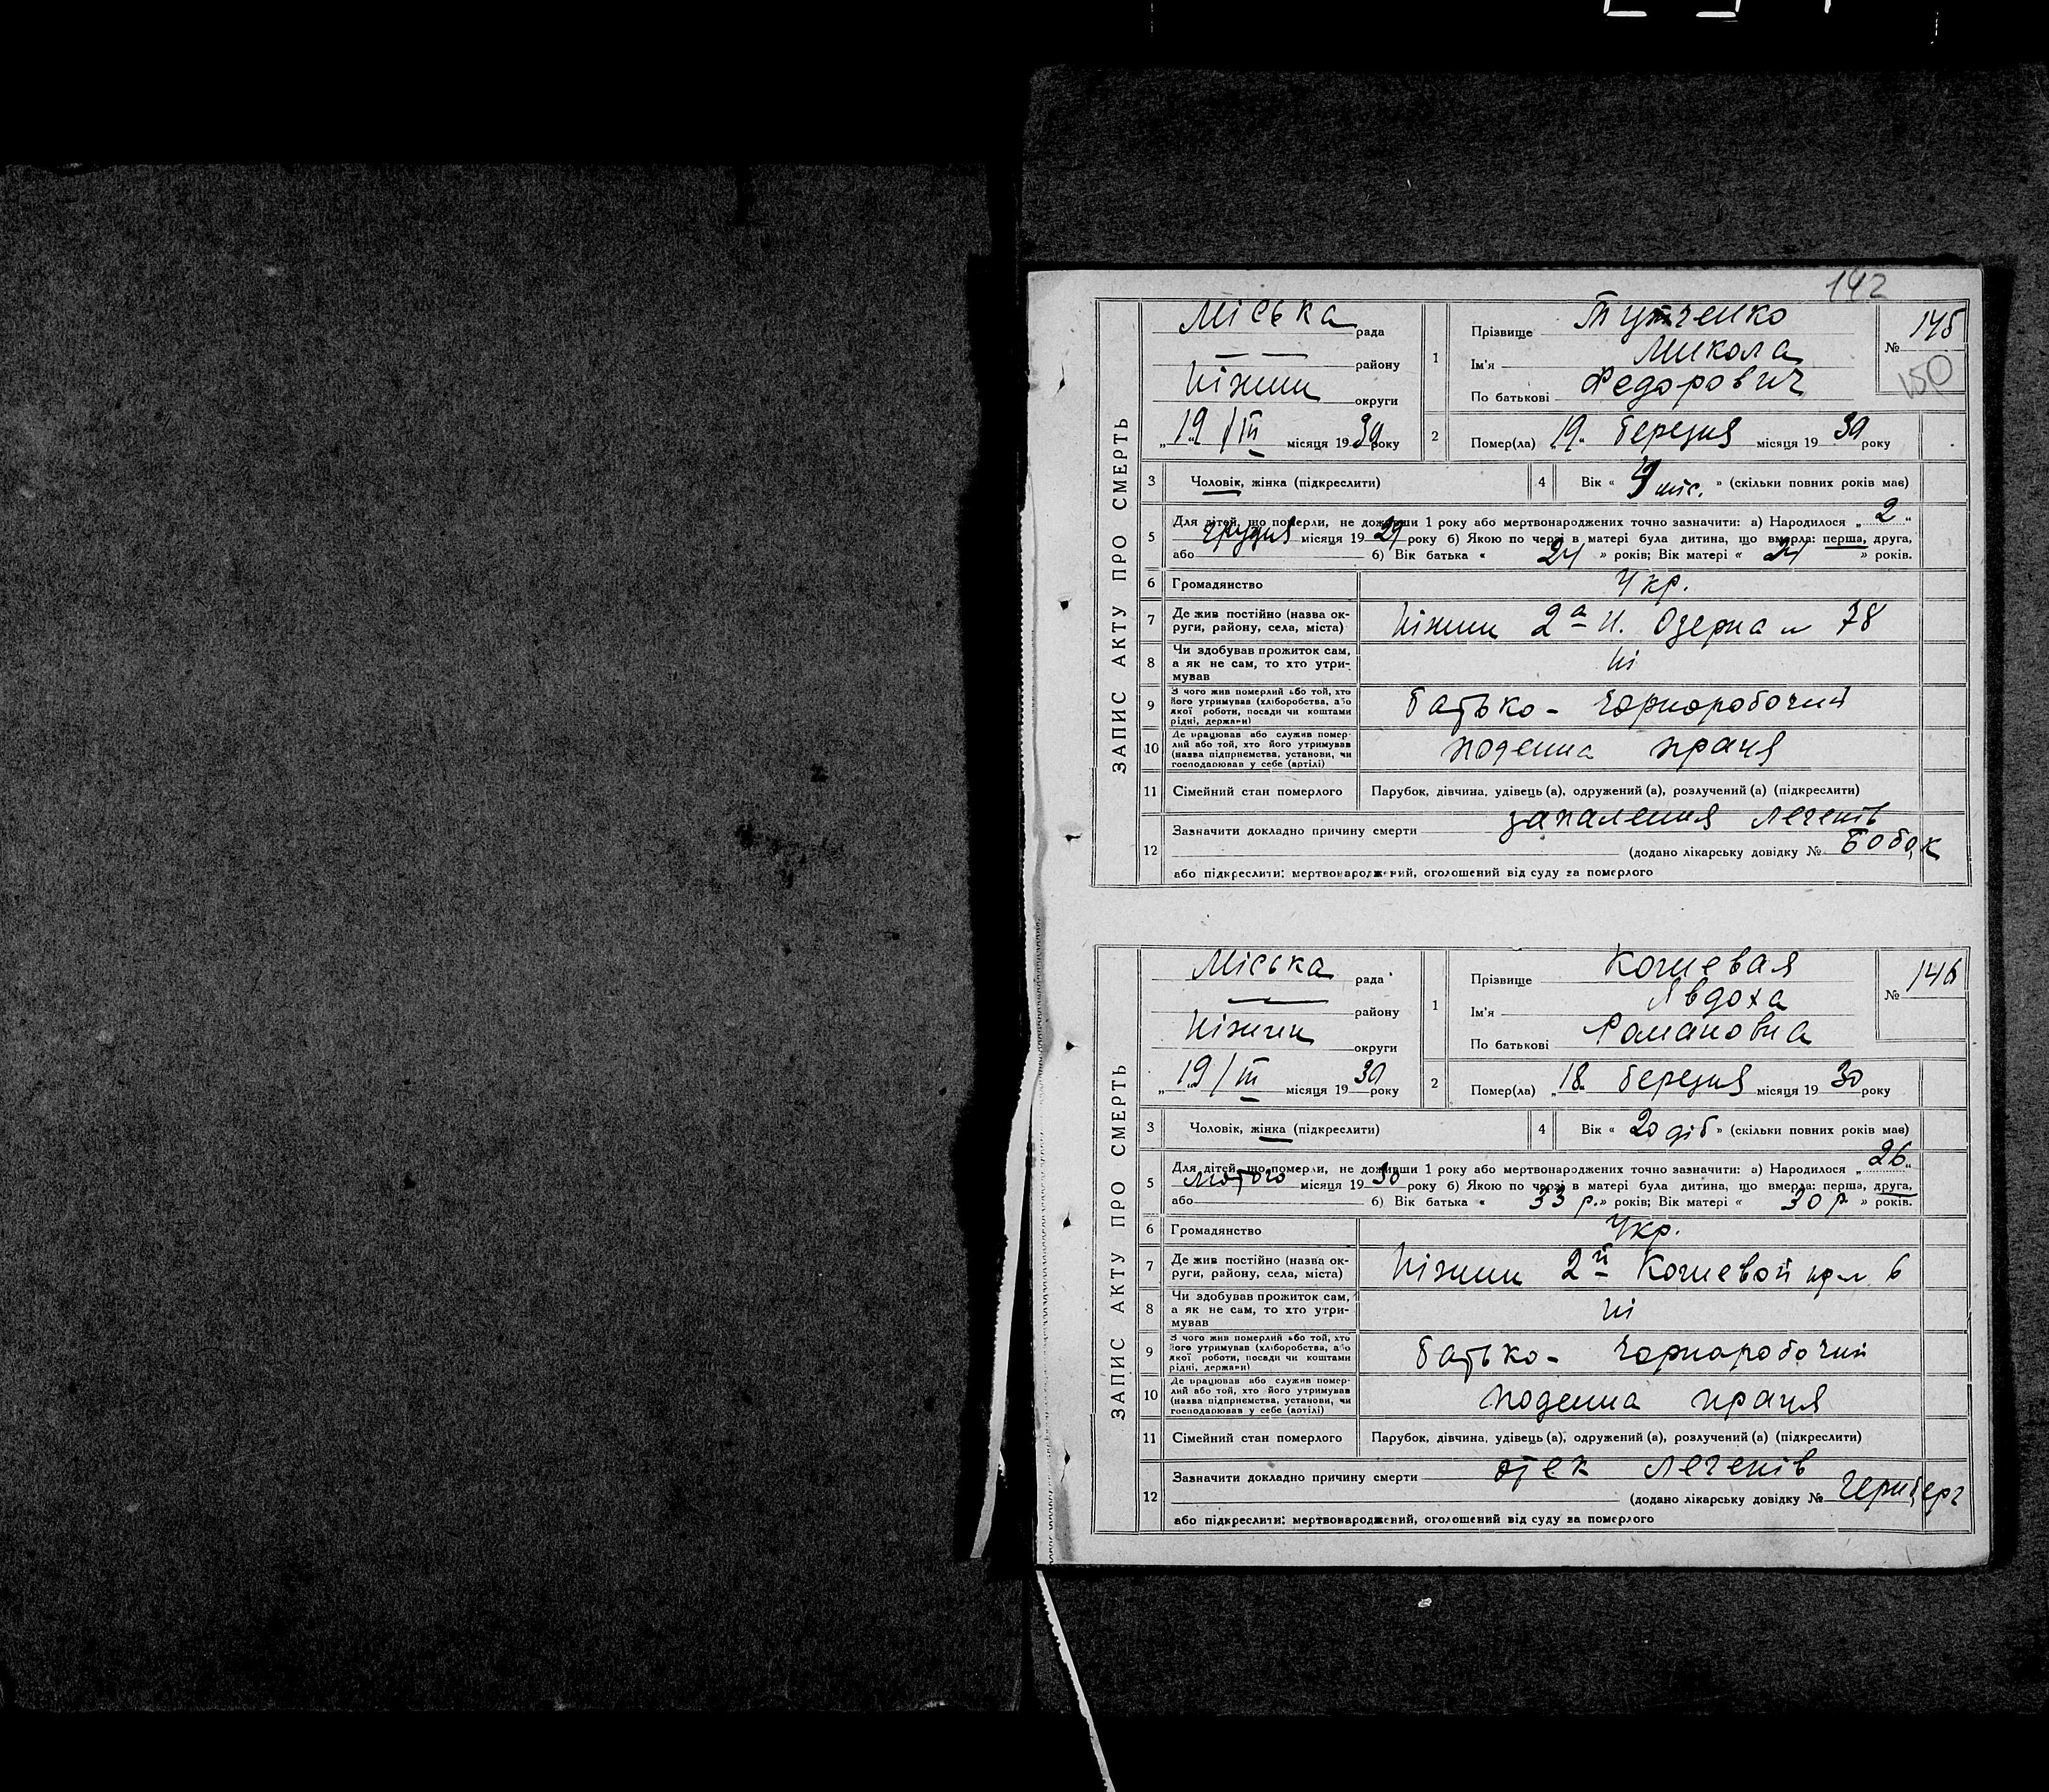 142
ЗАПИС АКТУ ПРО СМЕРТЬ
Міська рада
району
Ніжин округи
„19/III місяця 1930 року
1
Прізвище Тутченко
Ім'я Микола
По батькові Федорович
№ 145
150
2
Помер(ла) „19„ березня місяця 1930 року
3 Чоловік, жінка (підкреслити)
4 Вік « міс. » (скільки повних років має)
5 Для дітей, що померли, не доживши 1 року або мертвонароджених точно зазначити: а) Народилося „2“
грудня місяця 1929 року б) Якою по черзі в матері була дитина, що вмерла: перша, друга,
або б) Вік батька « 24 » років; Вік матері « 24 » років.
6 Громадянство Укр.
7 Де жив постійно (назва ок-
руги, району, села, міста)
Ніжин 2а Н. Озерна № 78
8 Чи здобував прожиток сам,
а як не сам, то хто утри-
мував
ні
9 З чого жив померлий або той, хто
його утримував (хліборобства, або
якої роботи, посади чи коштами
рідні, держави)
батько - чорноробочий
10 Де працював або служив помер-
лий або той, хто його утримував
(назва підприємства, установи, чи
господарював у себе (артілі)
поденна праця
11 Сімейний стан померлого Парубок, дівчина, удівець (а), одружений (а), розлучений (а) (підкреслити)
12 Зазначити докладно причину смерти запалення легенів
(додано лікарську довідку № Бобок
або підкреслити: мертвонароджений, оголошений від суду за померлого
ЗАПИС АКТУ ПРО СМЕРТЬ
Міська рада
району
Ніжин округи
„19/III місяця 1930 року
1
Прізвище Кошевая
Ім'я Явдоха
По батькові Романовна
№ 146
2
Помер(ла) „18„ березня місяця 1930 року
3 Чоловік, жінка (підкреслити)
4 Вік « 20 діб » (скільки повних років має)
5 Для дітей, що померли, не доживши 1 року або мертвонароджених точно зазначити: а) Народилося „26“
лютого місяця 1930 року б) Якою по черзі в матері була дитина, що вмерла: перша, друга,
або б) Вік батька « 33 р. » років; Вік матері « 30 р » років.
6 Громадянство Укр.
7 Де жив постійно (назва ок-
руги, району, села, міста)
Ніжин 2й Кошевой 6
8 Чи здобував прожиток сам,
а як не сам, то хто утри-
мував
ні
9 З чого жив померлий або той, хто
його утримував (хліборобства, або
якої роботи, посади чи коштами
рідні, держави)
батько - чорноробочий
10 Де працював або служив помер-
лий або той, хто його утримував
(назва підприємства, установи, чи
господарював у себе (артілі)
поденна праця
11 Сімейний стан померлого Парубок, дівчина, удівець (а), одружений (а), розлучений (а) (підкреслити)
12 Зазначити докладно причину смерти отек легенів
(додано лікарську довідку №
або підкреслити: мертвонароджений, оголошений від суду за померлого